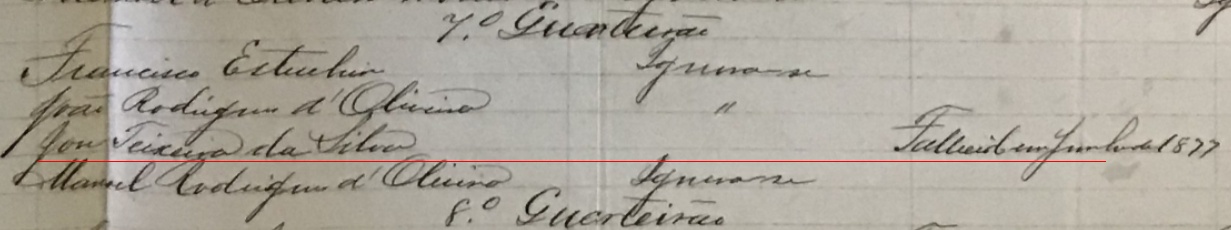 7.º Guarteirão
Francisco Estechin Ignora-se
João Rodrigues d'Oliveira "
José Teixeira da Silva Falleceu em Junho de 1877
Manoel Rodrigues d'Oliveira Ignora-se
8.º Guarteirão